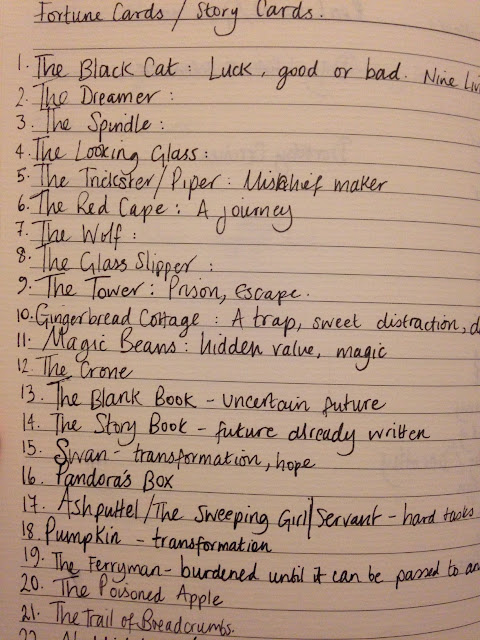 Fortune Cards / Story Cards.
1. The Black Cat : Luck, good or bad. Nine
2. The Dreamer :
3. The Spindle :
4. The Looking Glass :
5. The Trickster/Piper : Mischief maker
6. The Red Cape : A journey
7. The Wolf :
8. The Glass Slipper :
9. The Tower : Prison, escape.
10. Gingerbread Cottage : A trap, sweet distraction,
11. Magic Beans : hidden value, magic
12. The Crone
13. The Blank Book - uncertain future
14. The Story Book - future already written
15. Swan - transformation, hope
16. Pandora's Box
17. Ashputtel/The Sweeping Girl/Servant - hard tasks
18. Pumpkin - transformation
19. The Ferryman - burdened until it can be passed to
20. The Poisoned Apple
21. The Trail of Breadcrumbs.
22.